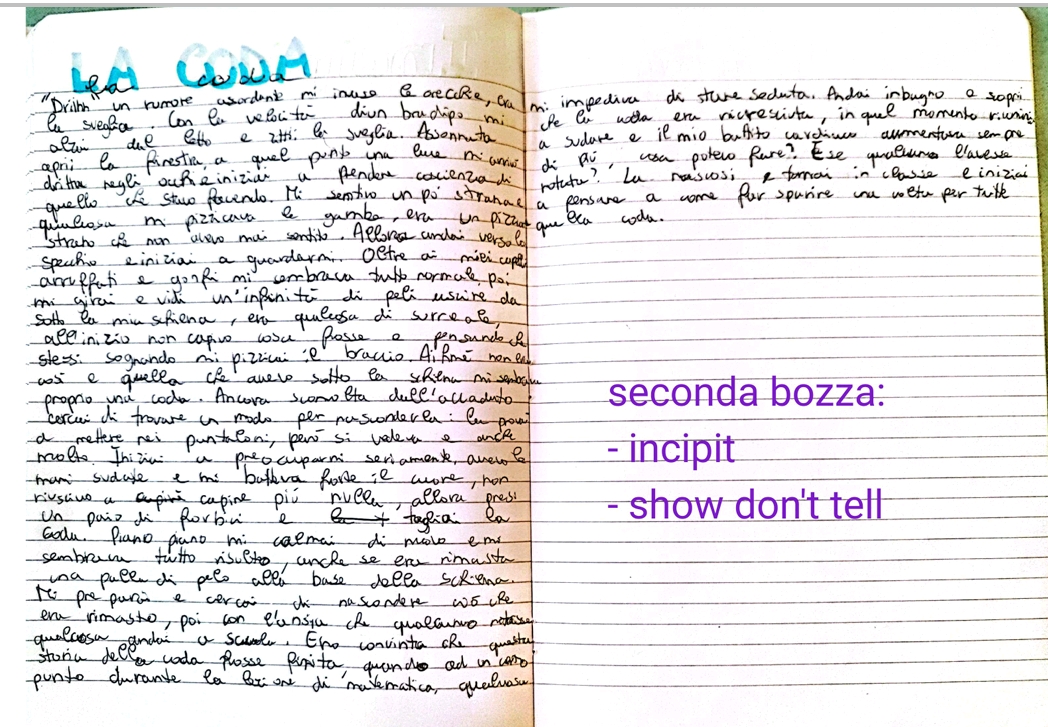 LA CODA
la coda
"Driiin" un rumore assordante mi invase le orecchie, era
la sveglia. Con la velocità di un bradipo mi
alzai dal letto e zittii la sveglia. Assonnata
aprii la finestra a quel punto una luce mi arrivò
dritta negli occhi e iniziai a prendere coscienza di
quello che stavo facendo. Mi sentivo un po' strana e
qualcosa mi pizzicava le gambe, era un pizzico
strano che non avevo mai sentito. Allora andai verso lo
specchio e iniziai a guardarmi. Oltre ai miei capelli
arruffati e gonfi mi sembrava tutto normale, poi
mi girai e vidi un'infinità di peli uscire da
sotto la mia schiena, era qualcosa di surreale,
all'inizio non capivo cosa fosse e pensando che
stessi sognando mi pizzicai il braccio. Ahimè non era
così e quella che avevo sotto la schiena mi sembrava
proprio una coda. Ancora sconvolta dall'accaduto
cercai di trovare un modo per nasconderla: la provai
a mettere nei pantaloni, però si vedeva e anche
molto. Iniziai a preoccuparmi seriamente, avevo le
mani sudate e mi batteva forte il cuore, non
riuscivo a capire più nulla, allora presi
un paio di forbici e tagliai la
coda. Piano piano mi calmai di nuovo e mi
sembrava tutto risolto, anche se era rimasta
una palla di pelo alla base della schiena.
Mi preparai e cercai di nascondere ciò che
era rimasto, poi con l'ansia che qualcuno notasse
qualcosa andai a scuola. Ero convinta che questa
storia della coda fosse finita quando ad un certo
punto durante la lezione di matematica, qualcosa
mi impediva di stare seduta. Andai in bagno e scoprii
che la coda era ricresciuta, in quel momento ricominciai
a sudare e il mio battito cardiaco aumentava sempre
di più, cosa potevo fare? E se qualcuno l'avesse
notata? La nascosi e tornai in classe e iniziai
a pensare a come far sparire una volta per tutte
quella coda.
seconda bozza:
- incipit
- show don't tell